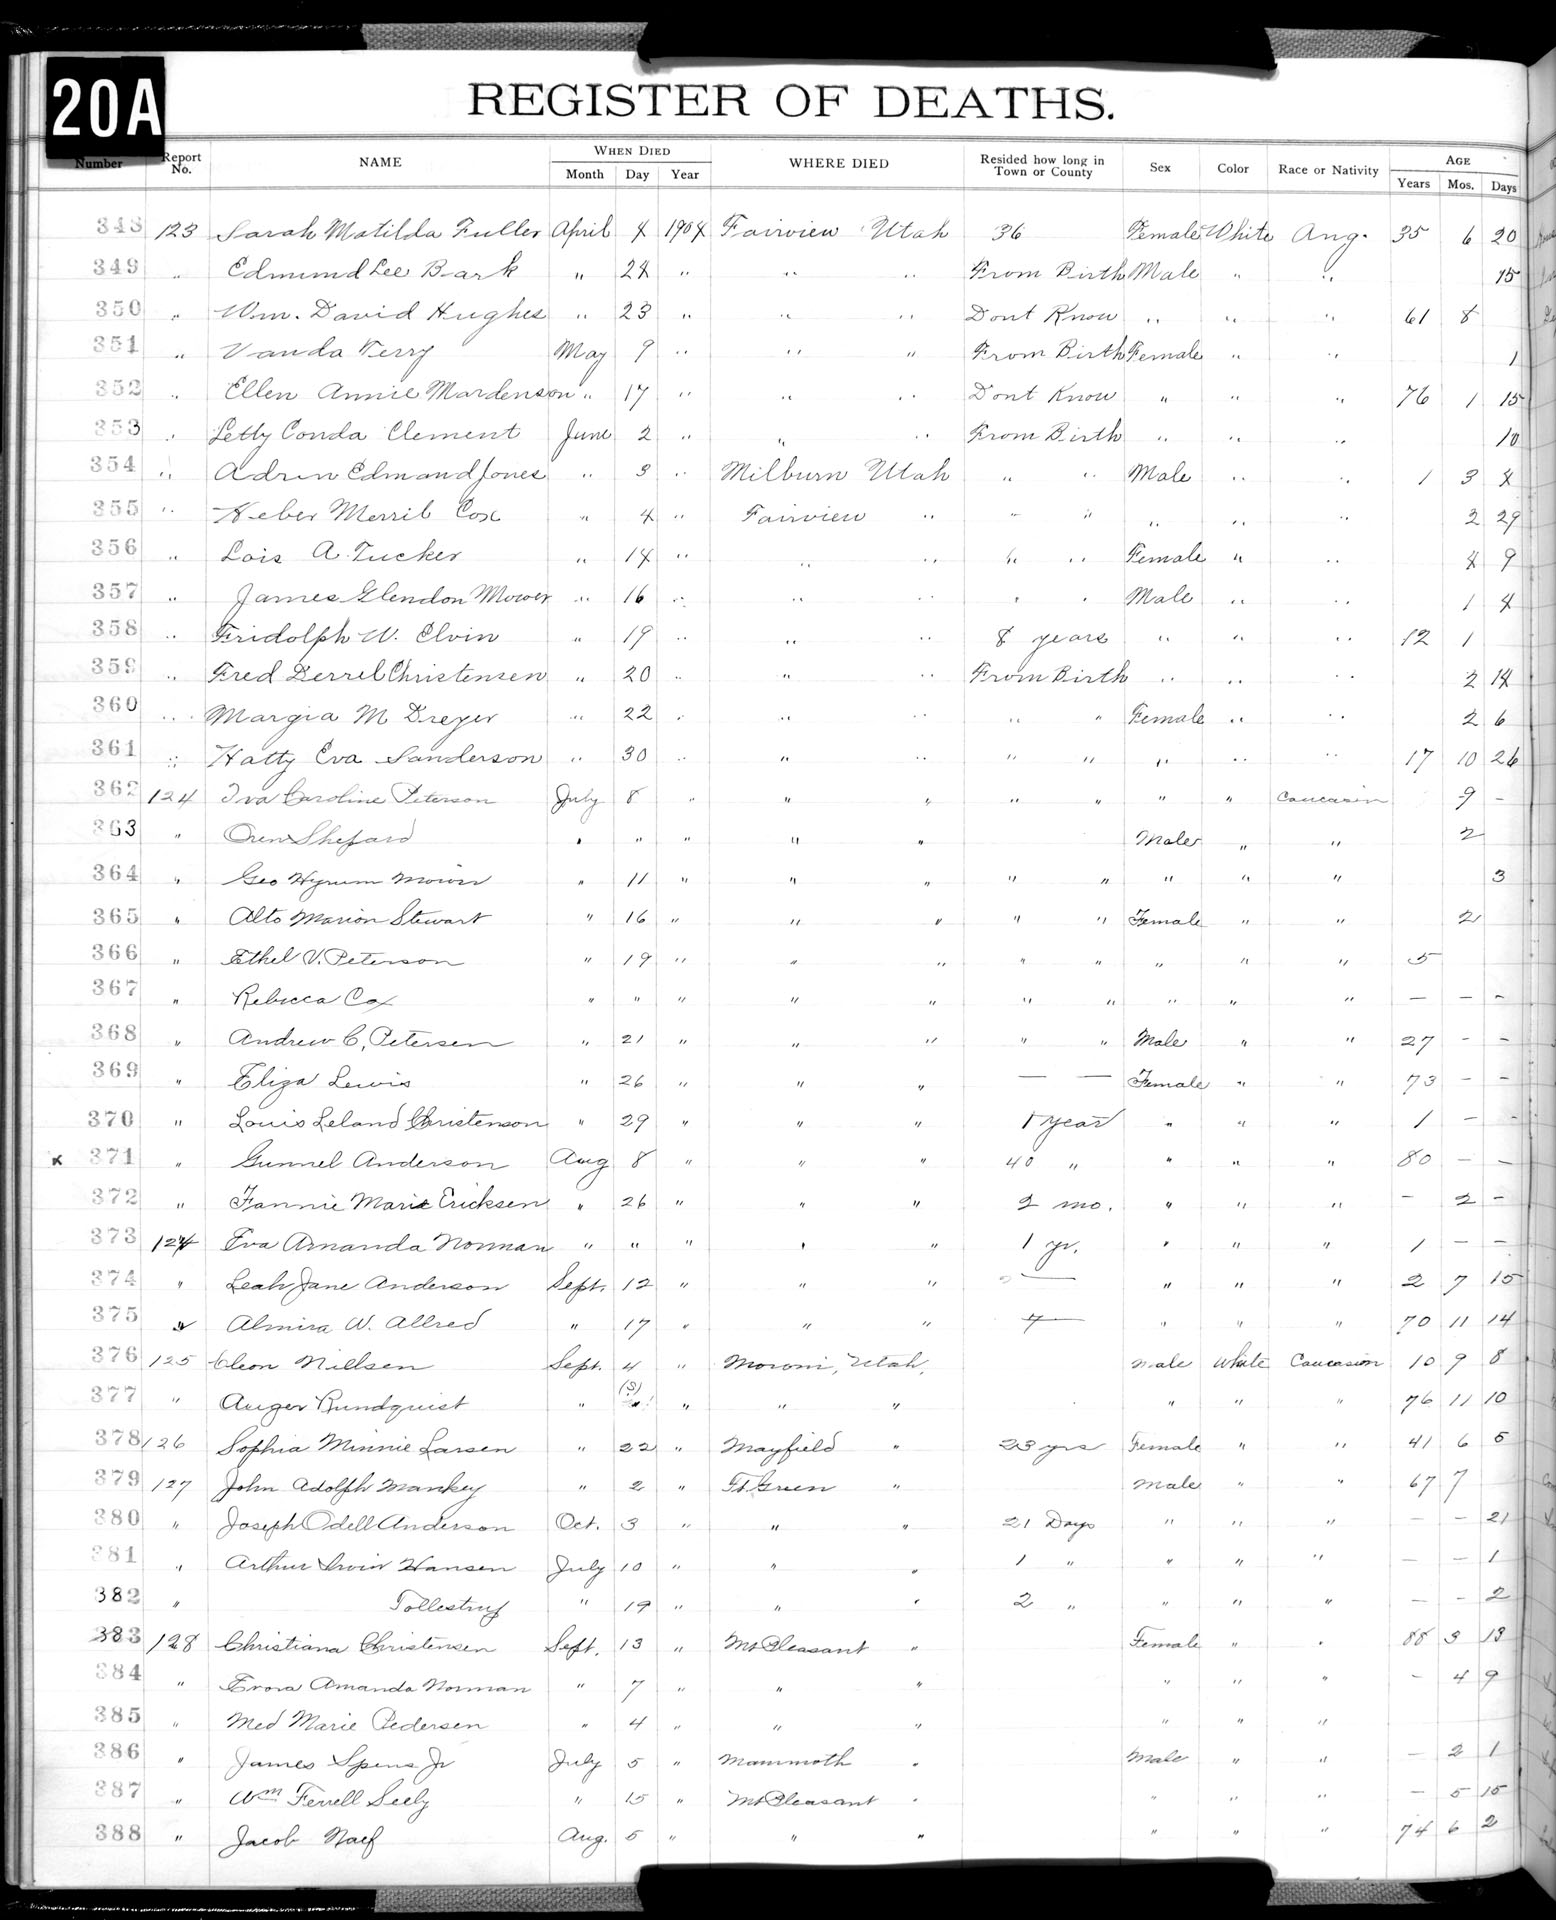 20A
REGISTER OF DEATHS.
Number Report No. NAME WHEN DIED Month Day Year WHERE DIED Resided how long in Town or County Sex Color Race or Nativity AGE Years Mos. Days
348 123 Sarah Matilda Fuller April 4 1904 Fairview Utah 36 Female White Ang. 35 6 20
349 " Edmund Lee Bark " 24 " " " From Birth Male " " 15
350 " Wm. David Hughes " 23 " " " Dont Know " " " 61 8
351 " Vanda Terry May 9 " " " From Birth Female " " 1
352 " Ellen Annie Mardenson " 17 " " " Dont Know " " " 76 1 15
353 " Letty Conda Clement June 2 " " " From Birth " " " 10
354 " Adrin Edmand Jones " 3 " Milburn Utah " " Male " " 1 3 4
355 " Heber Merril Cox " 4 " Fairview " " " " " " 2 29
356 " Lois A. Tucker " 14 " " " " " Female " " 4 9
357 " James Glendon Mower " 16 " " " " " Male " " 1 4
358 " Fridolph W. Elvin " 19 " " " 8 years " " " 12 1
359 " Fred Derrel Christensen " 20 " " " From Birth " " " 2 14
360 " Margia M Dreyer " 22 " " " " " Female " " 2 6
361 " Hatty Eva Sanderson " 30 " " " " " " " " 17 10 26
362 124 Iva Caroline Peterson July 8 " " " " " " " Caucasin 9 -
363 " Oren Shepard " " " " " Male " " 2
364 " " 11 " " " " " " " " 3
365 " Alto Marion Stewart " 16 " " " " " Female " " 2
366 " Ethel V. Peterson " 19 " " " " " " " " 5
367 " Rebecca Cox " " " " " " " " " " - - -
368 " Andrew C. Petersen " 21 " " " " " Male " " 27 - -
369 " Eliza Lewis " 26 " " " — — Female " " 73 - -
370 " Louis Leland Christenson " 29 " " " 1 year " " " 1 - -
x 371 " Gunnel Anderson Aug 8 " " " 40 " " " " 80 - -
372 " Fannie Marie Ericksen " 26 " " " 2 mo. " " " - 2 -
373 124 Eva Amanda Norman " " " " " 1 yr. " " " 1 - -
374 " Leah Jane Anderson Sept. 12 " " " — " " " 2 7 15
375 " Almira W. Allred " 17 " " " 7 " " " 70 11 14
376 125 Cleon Nillsen Sept. 4 " Moroni, Utah. Male White Caucasion 10 9 8
377 " Auger Rundquist " (S) " " " " " " 76 11 10
378 126 Sophia Minnie Larsen " 22 " Mayfield " 23 yrs Female " " 41 6 5
379 127 John Adolph Mankey " 2 " Ft. Green " Male " " 67 7
380 " Joseph Odell Anderson Oct. 3 " " " 21 Days " " " - - 21
381 " Arthur Irvin Hansen July 10 " " " 1 " " " " - - 1
382 " Tollestrup " 19 " " " 2 " " " " - - 2
383 128 Christiana Christensen Sept. 13 " Mt Pleasant " Female " " 88 3 13
384 " Amanda Norman " 7 " " " " " " - 4 9
385 " Med Marie Pedersen " 4 " " " " " "
386 " James Spens Jr July 5 " Mammoth " Male " " - 2 1
387 " Wm Ferrell Seely " 15 " Mt Pleasant " " " " - 5 15
388 " Jacob Naef Aug. 5 " " " " " " 74 6 2